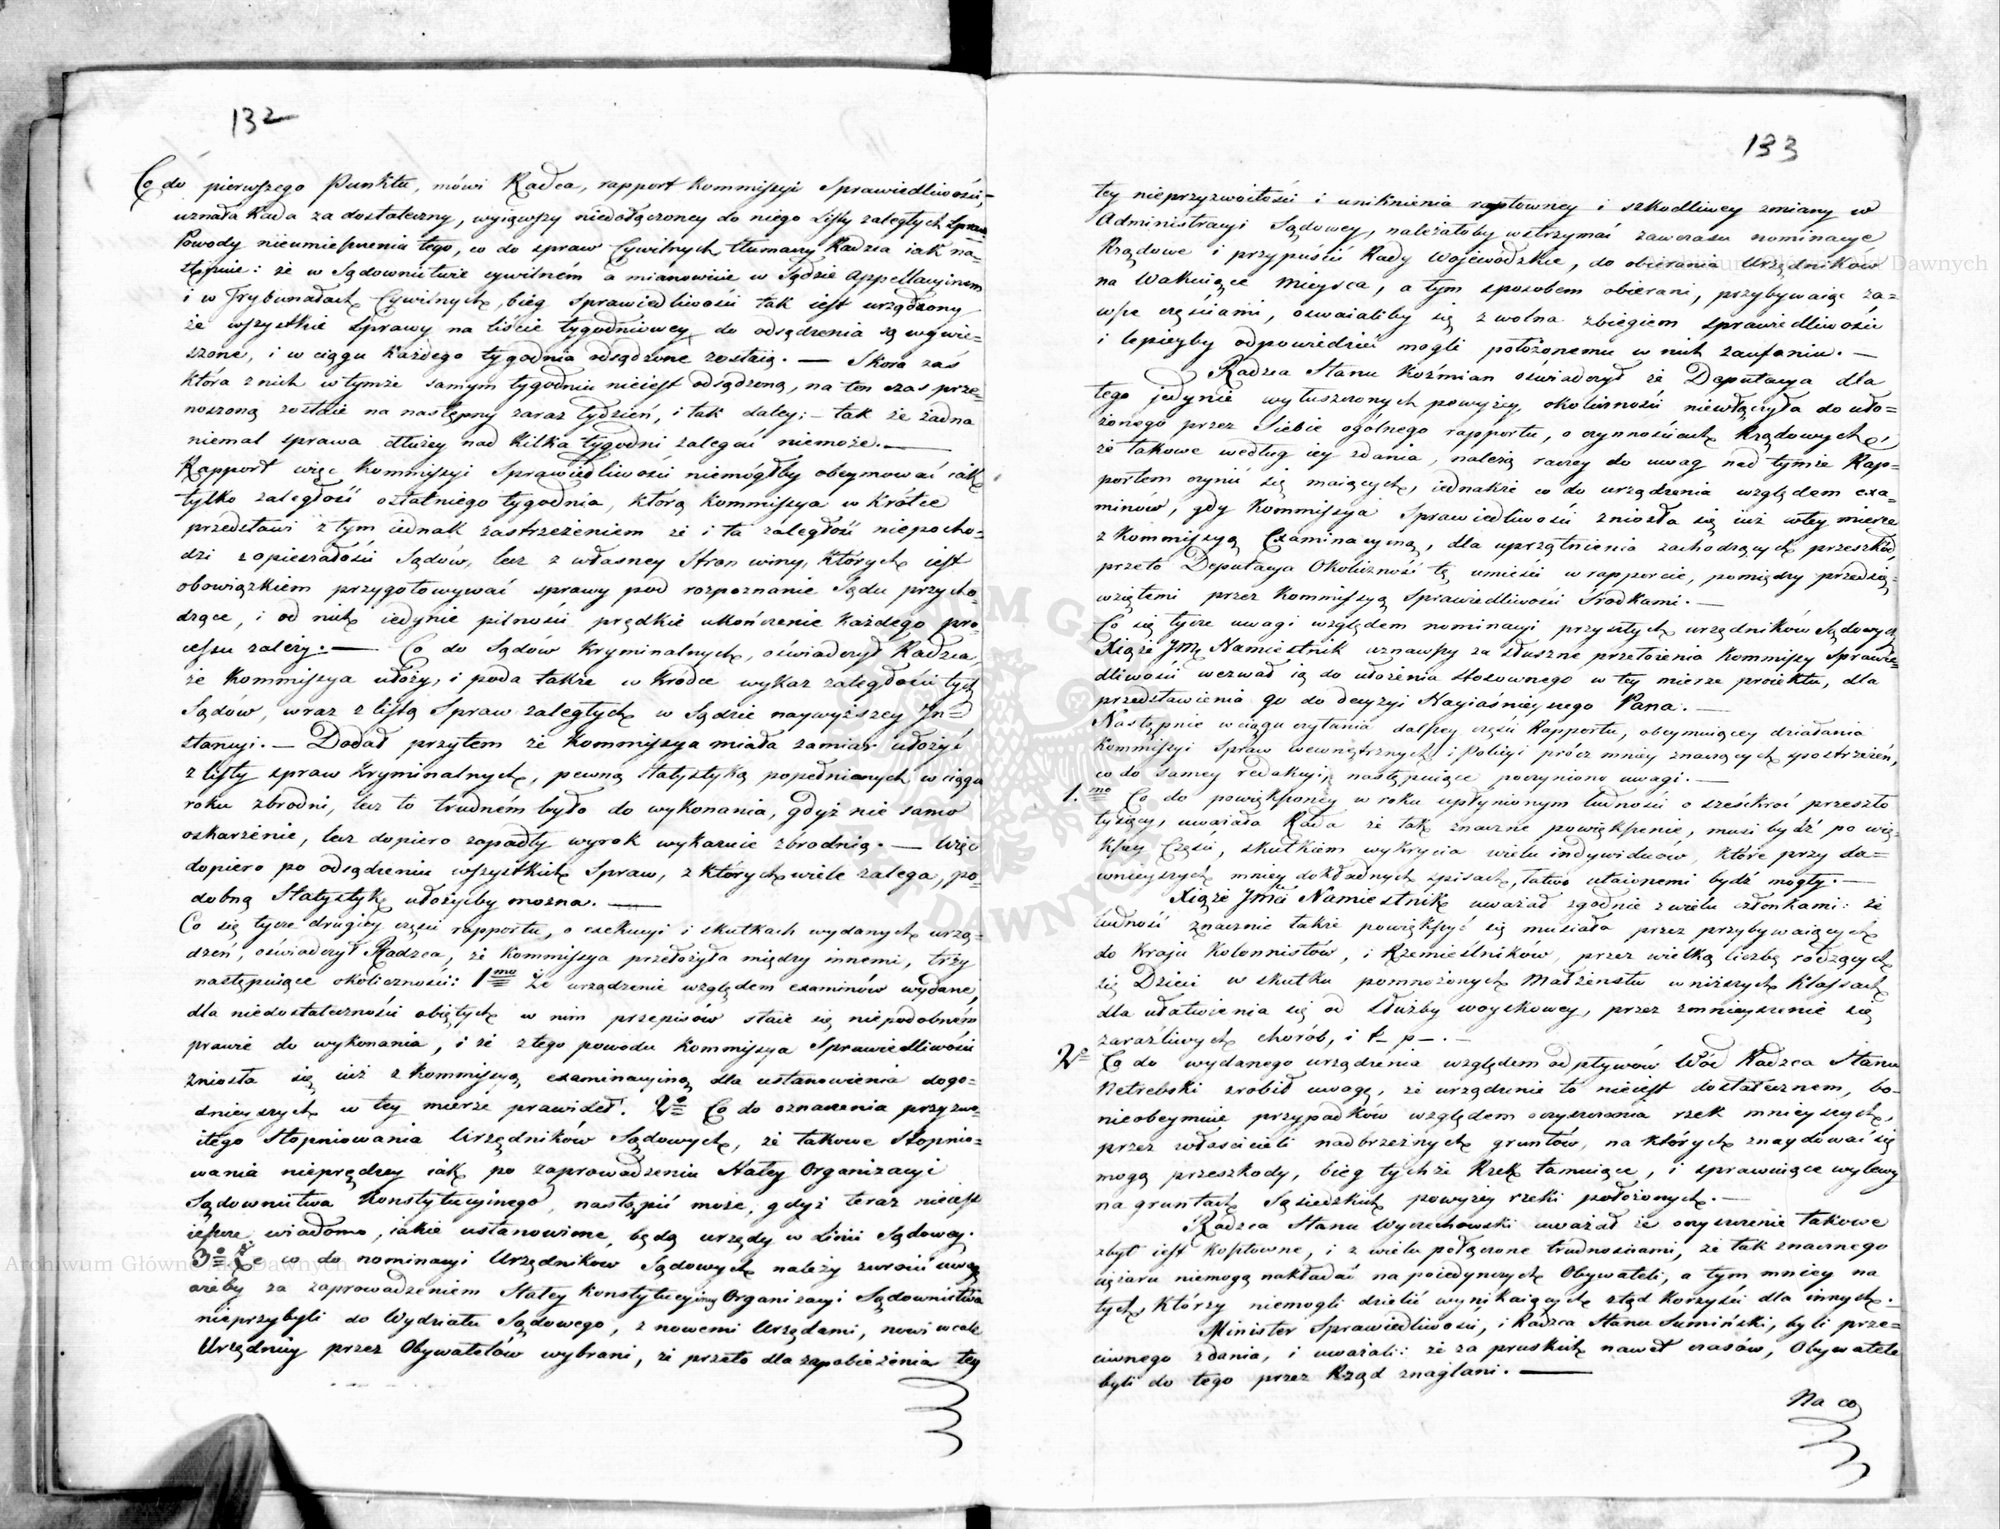 132
Co do pierwszego Punktu, mówi Radca, rapport Kommissyi Sprawiedliwości
uznała Rada za dostateczny, wyiąwszy niedołączoney do niego Listy zaległych Spraw
Powody nieumieszczenia tego, co do spraw Cywilnych tłumaczy Radzca iak na=
stępuie: że w Sądownictwie cywilném a mianowicie w Sądzie Appellacyinem
i w Trybunałach Cywilnych, bieg sprawiedliwości tak iest urządzony
że wszystkie Sprawy na liście tygodniowey do odsądzenia są wywie=
szone, i w ciągu każdego tygodnia odsądzone zostaią. — Skoro zaś
która z nich w tymże samym tygodniu nieiest odsądzoną, na ten czas prze=
noszoną zostaie na następny zaraz tydzień, i tak daley; – tak że żadna
niemal sprawa dłużey nad kilka tygodni zalegać niemoże. —
Rapport więc Kommissyi Sprawiedliwości niemógłby obeymować iak
tylko zaległość ostatniego tygodnia, którą Kommissya w krótce
przedstawi z tym iednak zastrzeżeniem że i ta zaległość niepocho=
dzi z opieszałości Sądów, lecz z własney Stron winy, których iest
obowiązkiem przygotowywać sprawy pod rozpoznanie Sądu przycho=
dzące, i od nich iedynie pilności prędkie ukończenie każdego pro=
cessu zależy. — Co do Sądów Kryminalnych, oświadczył Radzca,
że Kommissya ułoży, i poda także w krótce wykaz zaległości tych
Sądów, wraz z listą Spraw zaległych w Sądzie naywyższey In=
stancyi. — Dodał przytem że Kommissya miała zamiar ułożyć
z listy spraw Kryminalnych, pewną Statystykę popełnianych w ciągu
roku zbrodni, lecz to trudném było do wykonania, gdyż nie samo
oskarżenie, lecz dopiero zapadły wyrok wykazuie zbrodnią. — Więc
dopiero po odsądzeniu wszystkich Spraw, z których wiele zalega, po=
dobną Statystykę ułożyćby można. —
Co się tycze drugiey części rapportu, o exekucyi i skutkach wydanych urzą=
dzeń, oświadczył Radzca, że Kommissya przełożyła między innemi, trzy
następuiące okoliczności: 1mo że urządzenie względem examinów wydane,
dla niedostateczności obiętych w nim przepisów staie się niepodobném
prawie do wykonania, i że z tego powodu Kommissya Sprawiedliwości
zniosła się iuż z Kommissyą examinacyiną dla ustanowienia dogo=
dnieyszych w tey mierze prawideł. 2o Co do oznaczenia przyzwo=
itego stopniowania Urzędników Sądowych, że takowe stopnio=
wania nieprędzey iak po zaprowadzeniu Stałey Organizacyi
Sądownictwa Konstytucyinego, nastąpić może, gdyż teraz nieiest
ieszcze wiadomo, iakie ustanowione będą urzędy w Linii Sądowey.
3o Że co do nominacyi Urzędników Sądowych należy zwrócić uwagę
ażeby za zaprowadzeniem Stałey Konstytucyiney Organizacyi Sądownictwa
nieprzybyli do Wydziału Sądowego, z nowemi Urzędami, nowi wcale
Urzędnicy przez Obywatelów wybrani, że przeto dla zapobieżenia tey
133
tey nieprzyzwoitości i uniknienia raptowney i szkodliwey zmiany w
Administracyi Sądowey, należałoby wstrzymać zawczasu nominacye
Rządowe i przypuścić Rady Woiewódzkie, do obierania Urzędników
na Wakuiące mieysca, a tym sposobem obierani, przybywaiąc za=
wsze częściami, oswaialiby się zwolna z biegiem sprawiedliwości
i lepieyby odpowiedzieć mogli położonemu w nich zaufaniu. —
Radzca Stanu Koźmian oświadczył że Deputacya dla
tego jedynie wyłuszczonych powyżey, okoliczności niewłączyła do uło=
żonego przez Siebie ogólnego rapportu, o czynnościach Rządowych,
że takowe według iey zdania, należą raczey do uwag nad tymże Rap=
portem czynić się maiących, iednakże co do urządzenia względem exa=
minów, gdy Kommissya Sprawiedliwości zniosła się iuż w tey mierze
z Kommissyą Examinacyiną, dla uprzątnienia zachodzących przeszkód,
przeto Deputacya Okoliczność tę umieści w rapporcie, pomiędzy przedsię=
wziętemi przez Kommissyą Sprawiedliwości Środkami. —
Co się tycze uwagi względem nominacyi przyszłych urzędników Sądowych
Xiąże Jmć Namiestnik uznawszy za słuszne przełożenia Kommissyi Sprawie=
dliwości wezwał ią do ułożenia stosownego w tey mierze proiektu, dla
przedstawienia go do decyzyi Nayiaśnieyszego Pana. —
Następnie w ciągu czytania dalszey części Rapportu, obeymuiącey działania
Kommissyi Spraw wewnętrznych i Policyi prócz mniey znaczących spostrzeżeń,
co do samey redakcyi, następuiące poczyniono uwagi. —
1.mo Co do powiększoney w roku upłynionym ludności o sześćkroć przeszło
tysięcy, uważała Rada że tak znaczne powiększenie, musi bydź po wię=
kszey Części, skutkiem wykrycia wielu indywiduów, które przy da=
wnieyszych mniey dokładnych spisach, łatwo utaionemi bydź mogły. —
Xiąże Jmć Namiestnik uważał zgodnie z wielu członkami: że
ludność znacznie także powiększyć się musiała przez przybywaiących
do kraju Kolonnistów, i Rzemieślników, przez wielką liczbę rodzących
się Dzieci w skutku pomnożonych Małżeństw w niższych Klassach
dla ułatwienia się od służby woyskowey, przez zmnieyszenie się
zaraźliwych chorób, i t– p–. –
2o Co do wydanego urządzenia względem odpływów Wód Radzca Stanu
Netrebski zrobił uwagę, że urządzenie to nieiest dostatecznem, bo=
nieobeymuie przypadków względem czyszczenia rzek mnieyszych,
przez właścicieli nadbrzeżnych gruntów, na których znaydować się
mogą przeszkody, bieg tychże Rzek tamuiące, i sprawuiące wylewy
na gruntach Sąsiedzkich powyżey rzeki położonych. —
Radzca Stanu Wyczechowski uważał że czyszczenie takowe
zbyt iest kosztowne, i z wielu połączone trudnościami, że tak znacznego
ciężaru niemogą nakładać na poiedynczych Obywateli, a tym mniey na
tych, którzy niemogli dzielić wynikaiących ztąd korzyści dla innych. –
Minister Sprawiedliwości, i Radzca Stanu Sumiński, byli prze=
ciwnego zdania, i uważali: że za pruskich nawet czasów, Obywatele
byli do tego przez Rząd znaglani. —
Na co
Archiwum Główne Akt Dawnych